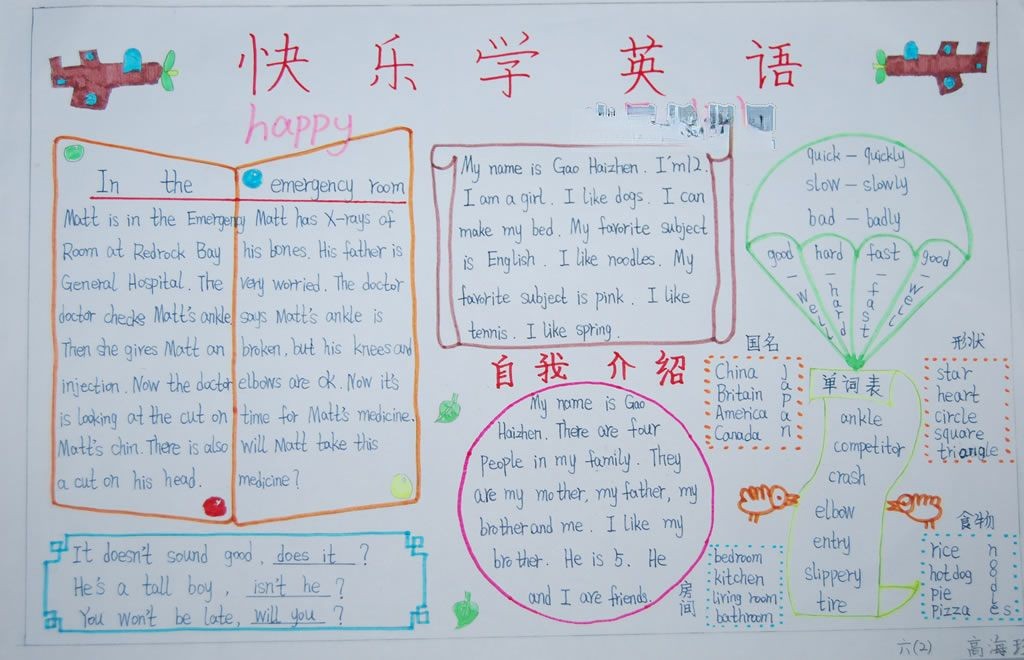 快乐学英语
happy
In the emergency room
Matt is in the Emergency
Room at Redrock Bay
General Hospital. The
doctor checks Matt's ankle.
Then she gives Matt an
injection. Now the doctor
is looking at the cut on
Matt's chin. There is also
a cut on his head.
Matt has X-rays of
his bones. His father is
very worried. The doctor
says Matt's ankle is
broken, but his knees and
elbows are ok. Now it's
time for Matt's medicine.
will Matt take this
medicine?
It doesn't sound good, does it ?
He's a tall boy, isn't he ?
You won't be late, will you ?
My name is Gao Haizhen. I'm12.
I am a girl. I like dogs. I can
make my bed. My favorite subject
is English. I like noodles. My
favorite subject is pink. I like
tennis. I like spring.
自我介绍
My name is Gao
Haizhen. There are four
people in my family. They
are my mother, my father, my
brother and me. I like my
brother. He is 5. He
and I are friends.
quick - quickly
slow - slowly
bad - badly
good - well
hard - hard
fast - fast
good - well
国名
China
Britain
America
Canada
Japan
形状
star
heart
circle
square
triangle
单词表
ankle
competitor
crash
elbow
entry
slippery
tire
房间
bedroom
kitchen
living room
bathroom
食物
rice
hotdog
pie
pizza
六(2) 高海